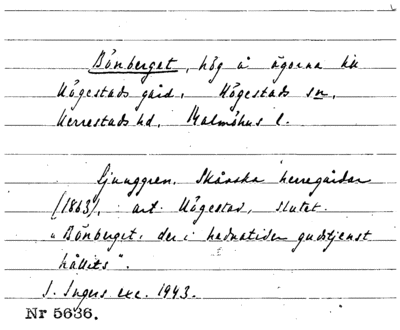 Bönberget, hög å ägorna till
Högestads gård, Högestads sn,
Herrestads hd, Malmöhus l.
Ljunggren, Skånska herregårdar
(1863), art. Högestad, slutet.
"Bönberget, der i hednatiden gudstjenst
hållits".
I. Ingers exc. 1943.
Nr 5636.